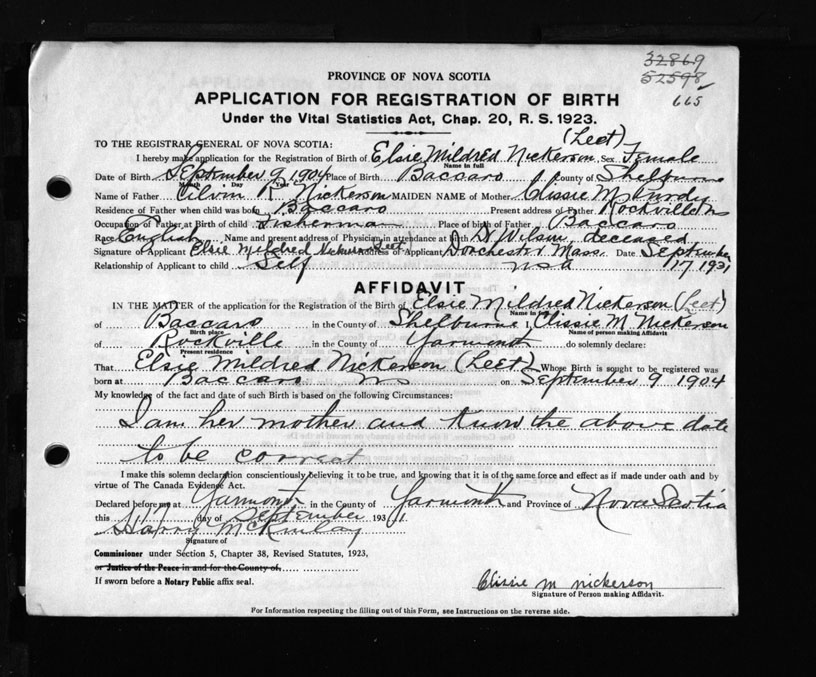 32869
52598
665
PROVINCE OF NOVA SCOTIA
APPLICATION FOR REGISTRATION OF BIRTH
Under the Vital Statistics Act, Chap. 20, R. S. 1923.
TO THE REGISTRAR GENERAL OF NOVA SCOTIA: (Leet)
I hereby make application for the Registration of Birth of Elsie Mildred Nickerson Sex Female
Name in full
Date of Birth September 9 1904 Place of Birth Baccaro County of Shelburne
Month Day Year
Name of Father R. Nickerson MAIDEN NAME of Mother Clissie M Purdy
Residence of Father when child was born Baccaro Present address of Father Rockville NS
Occupation of Father at Birth of child Fisherman Place of birth of Father Baccaro
Race English Name and present address of Physician in attendance at birth Dr Wilson, deceased
Signature of Applicant Elsie Mildred Nickerson Leet Address of Applicant Dorchester Mass. Date September
Relationship of Applicant to child Self USA 17 1931
AFFIDAVIT
IN THE MATTER of the application for the Registration of the Birth of Elsie Mildred Nickerson (Leet)
Name in full
of Baccaro in the County of Shelburne I, Clissie M Nickerson
Birth place Name of person making Affidavit
of Rockville in the County of Yarmouth do solemnly declare:
Present residence
That Elsie Mildred Nickerson (Leet) Whose Birth is sought to be registered was
born at Baccaro NS on September 9 1904
My knowledge of the fact and date of such Birth is based on the following Circumstances:
I am her mother and know the above date
to be correct
I make this solemn declaration conscientiously believing it to be true, and knowing that it is of the same force and effect as if made under oath and by
virtue of The Canada Evidence Act.
Declared before me at Yarmouth in the County of Yarmouth and Province of Nova Scotia
this day of September 1931.
Harry McKinlay
Signature of
Commissioner under Section 5, Chapter 38, Revised Statutes, 1923,
or Justice of the Peace in and for the County of
If sworn before a Notary Public affix seal.
Clissie M Nickerson
Signature of Person making Affidavit.
For Information respecting the filling out of this Form, see Instructions on the reverse side.